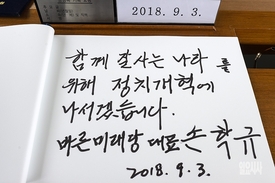 2018. 9. 3.
함께 잘사는 나라 를
위해 정치개혁에
나서겠습니다.
바른미래당 대표 손 학 규
2018. 9. 3.